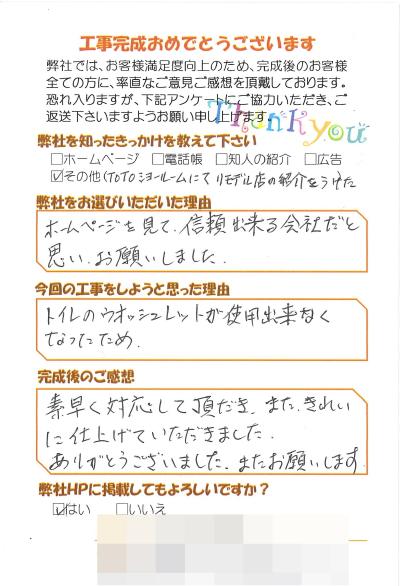 工事完成おめでとうございます
弊社では、お客様満足度向上のため、完成後のお客様
全ての方に、率直なご意見ご感想を頂戴しております。
恐れ入りますが、下記アンケートにご協力いただき、ご
返送下さいますようお願い申し上げます。
Thank you
弊社を知ったきっかけを教えて下さい
□ホームページ □電話帳 □知人の紹介 □広告
☑その他(TOTOショールームにてリモデル店の紹介をうけた
弊社をお選びいただいた理由
ホームページを見て、信頼出来る会社だと
思い、お願いしました。
今回の工事をしようと思った理由
トイレのウオッシュレットが使用出来なく
なったため。
完成後のご感想
素早く対応して頂だき、また、きれい
に仕上げていただきました。
ありがとうございました。またお願いします
弊社HPに掲載してもよろしいですか？
☑はい □いいえ